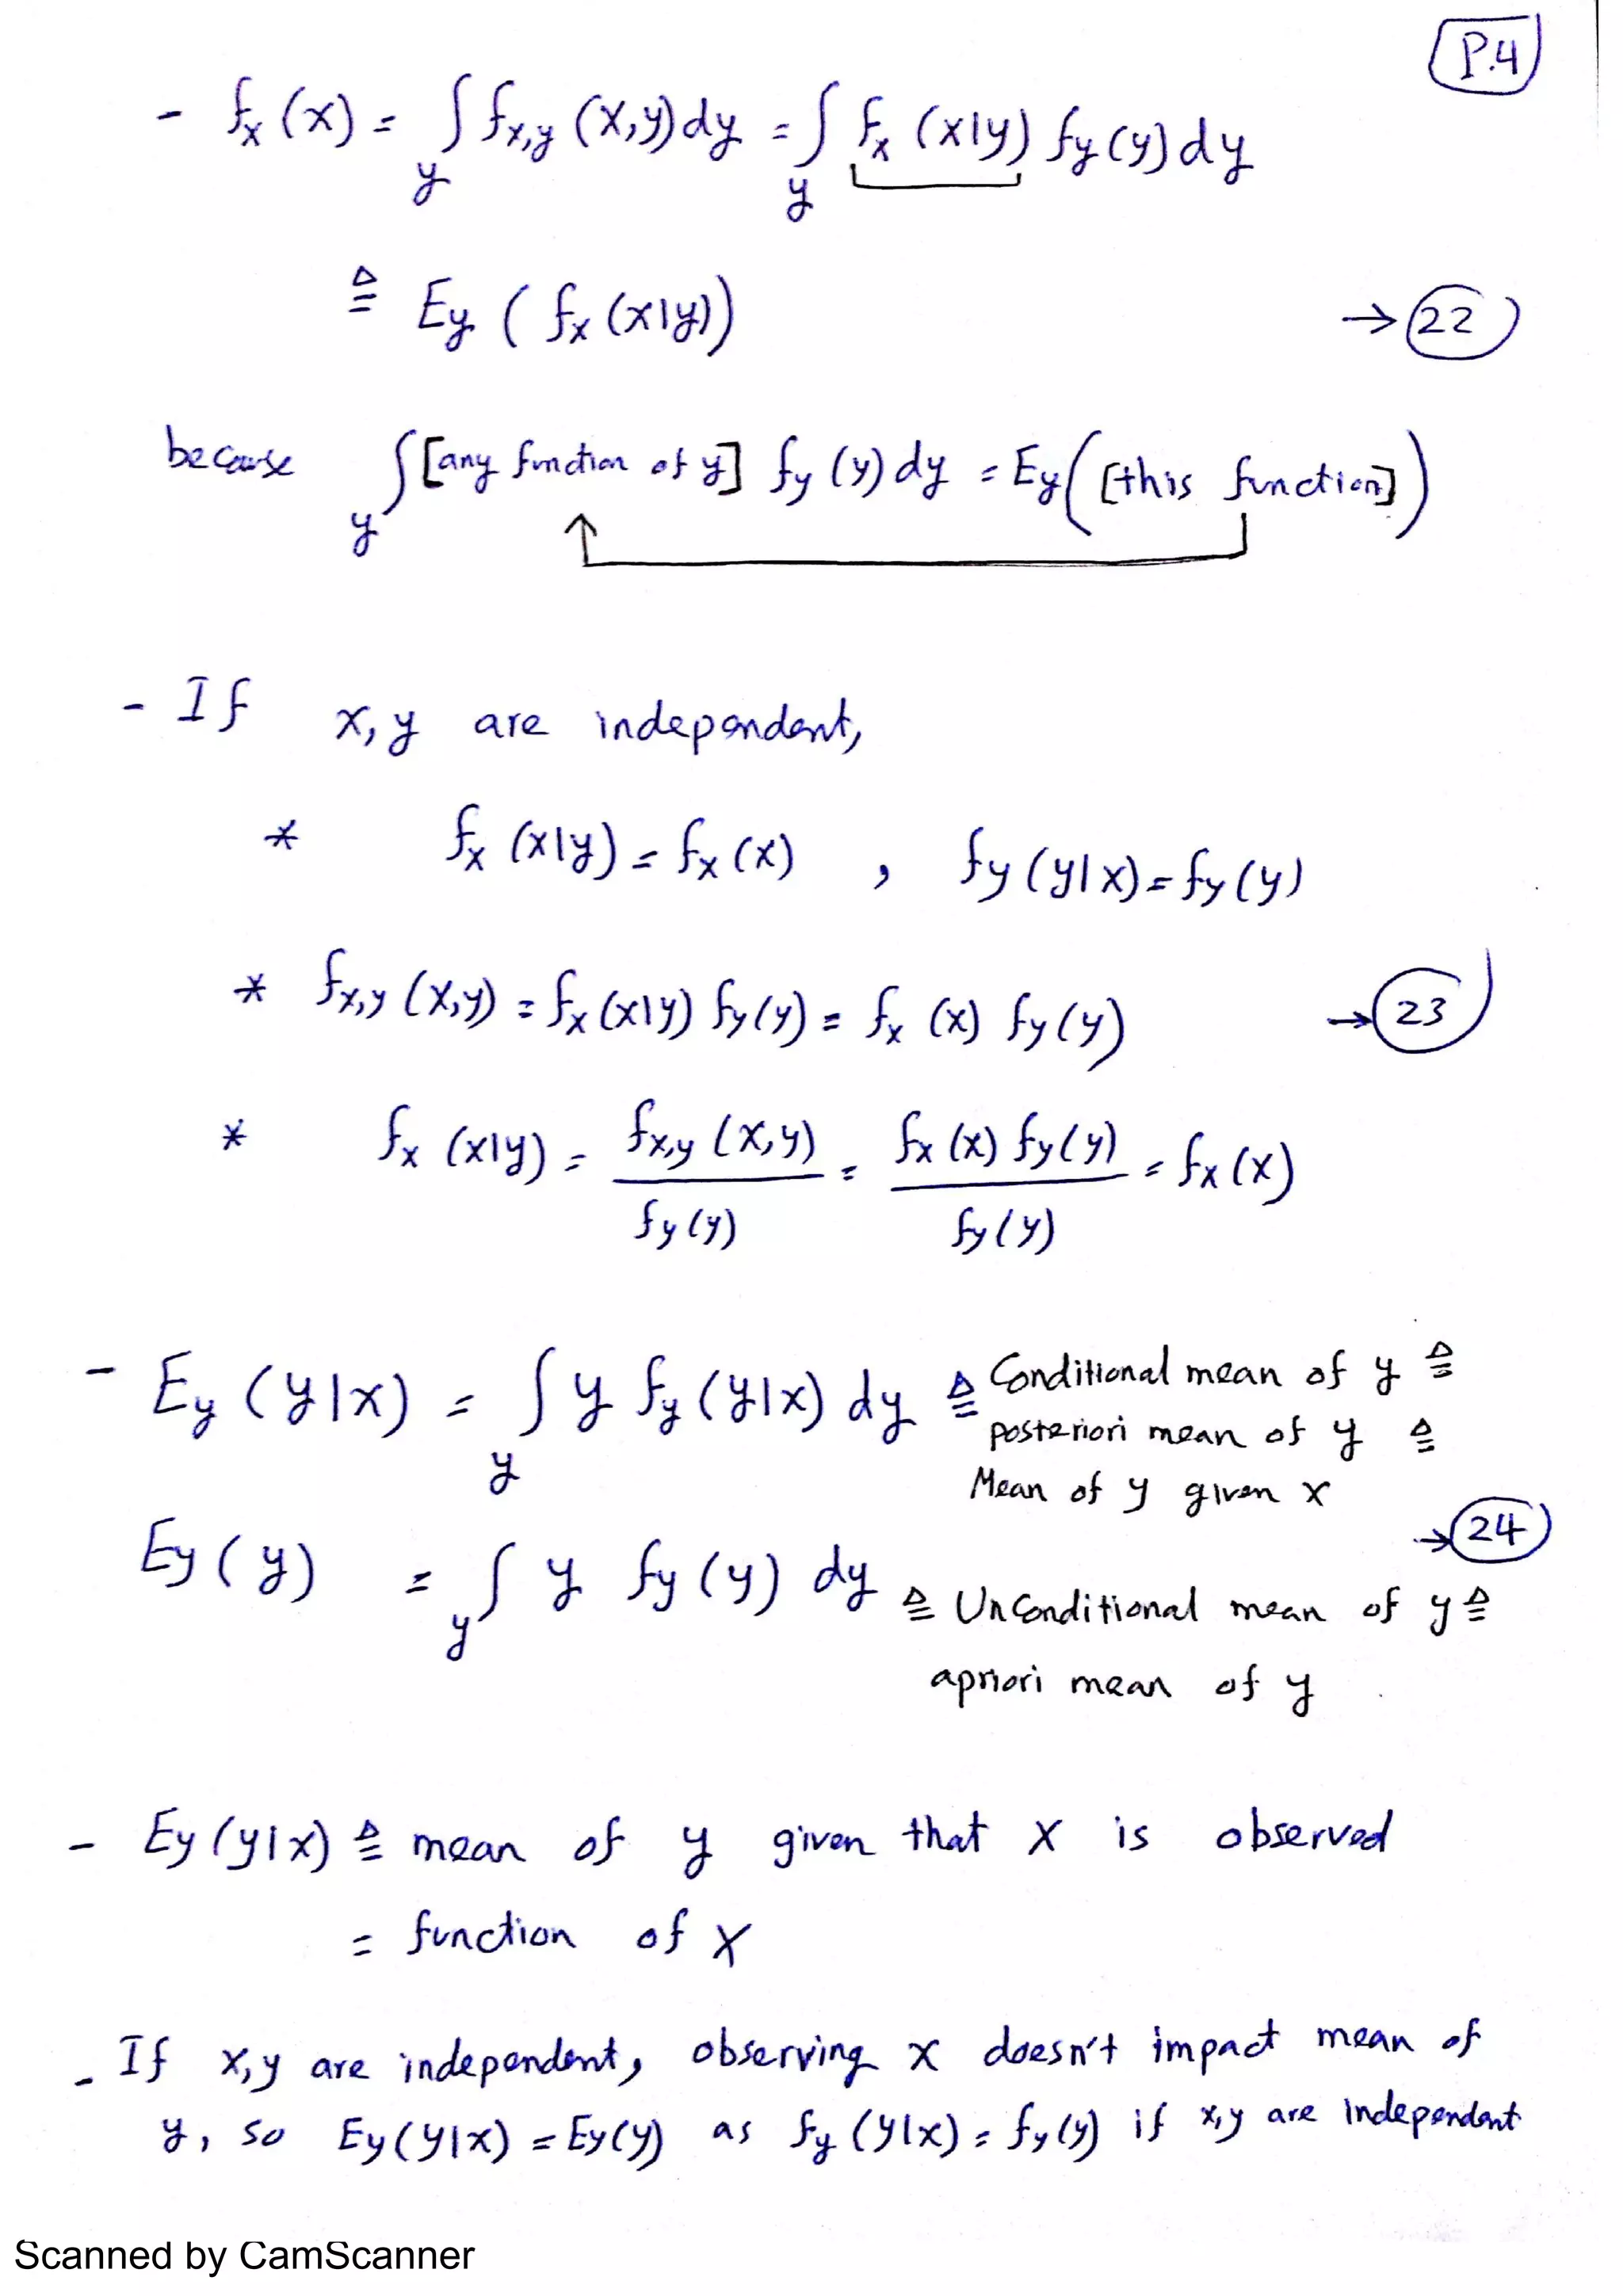 P.4
- fx (x) = ∫y fx,y (x,y) dy = ∫y fx (x|y) fy (y) dy
≜ Ey ( fx (x|y))
→ 22
because ∫y [any function of y] fy (y) dy = Ey ( [this function] )
- If x, y are independent,
* fx (x|y) = fx (x) , fy (y|x) = fy (y)
* fx,y (x,y) = fx (x|y) fy (y) = fx (x) fy (y)
→ 23
* fx (x|y) = fx,y (x,y) / fy (y) = fx (x) fy (y) / fy (y) = fx (x)
- Ey (y|x) = ∫y y fy (y|x) dy ≜ Conditional mean of y ≜
posteriori mean of y ≜
Mean of y given x
→ 24
Ey (y) = ∫y y fy (y) dy ≜ Unconditional mean of y ≜
apriori mean of y
- Ey (y|x) ≜ mean of y given that x is observed
= function of x
- If x, y are independent, observing x doesn't impact mean of
y, so Ey (y|x) = Ey (y) as fy (y|x) = fy (y) if x,y are independent
Scanned by CamScanner